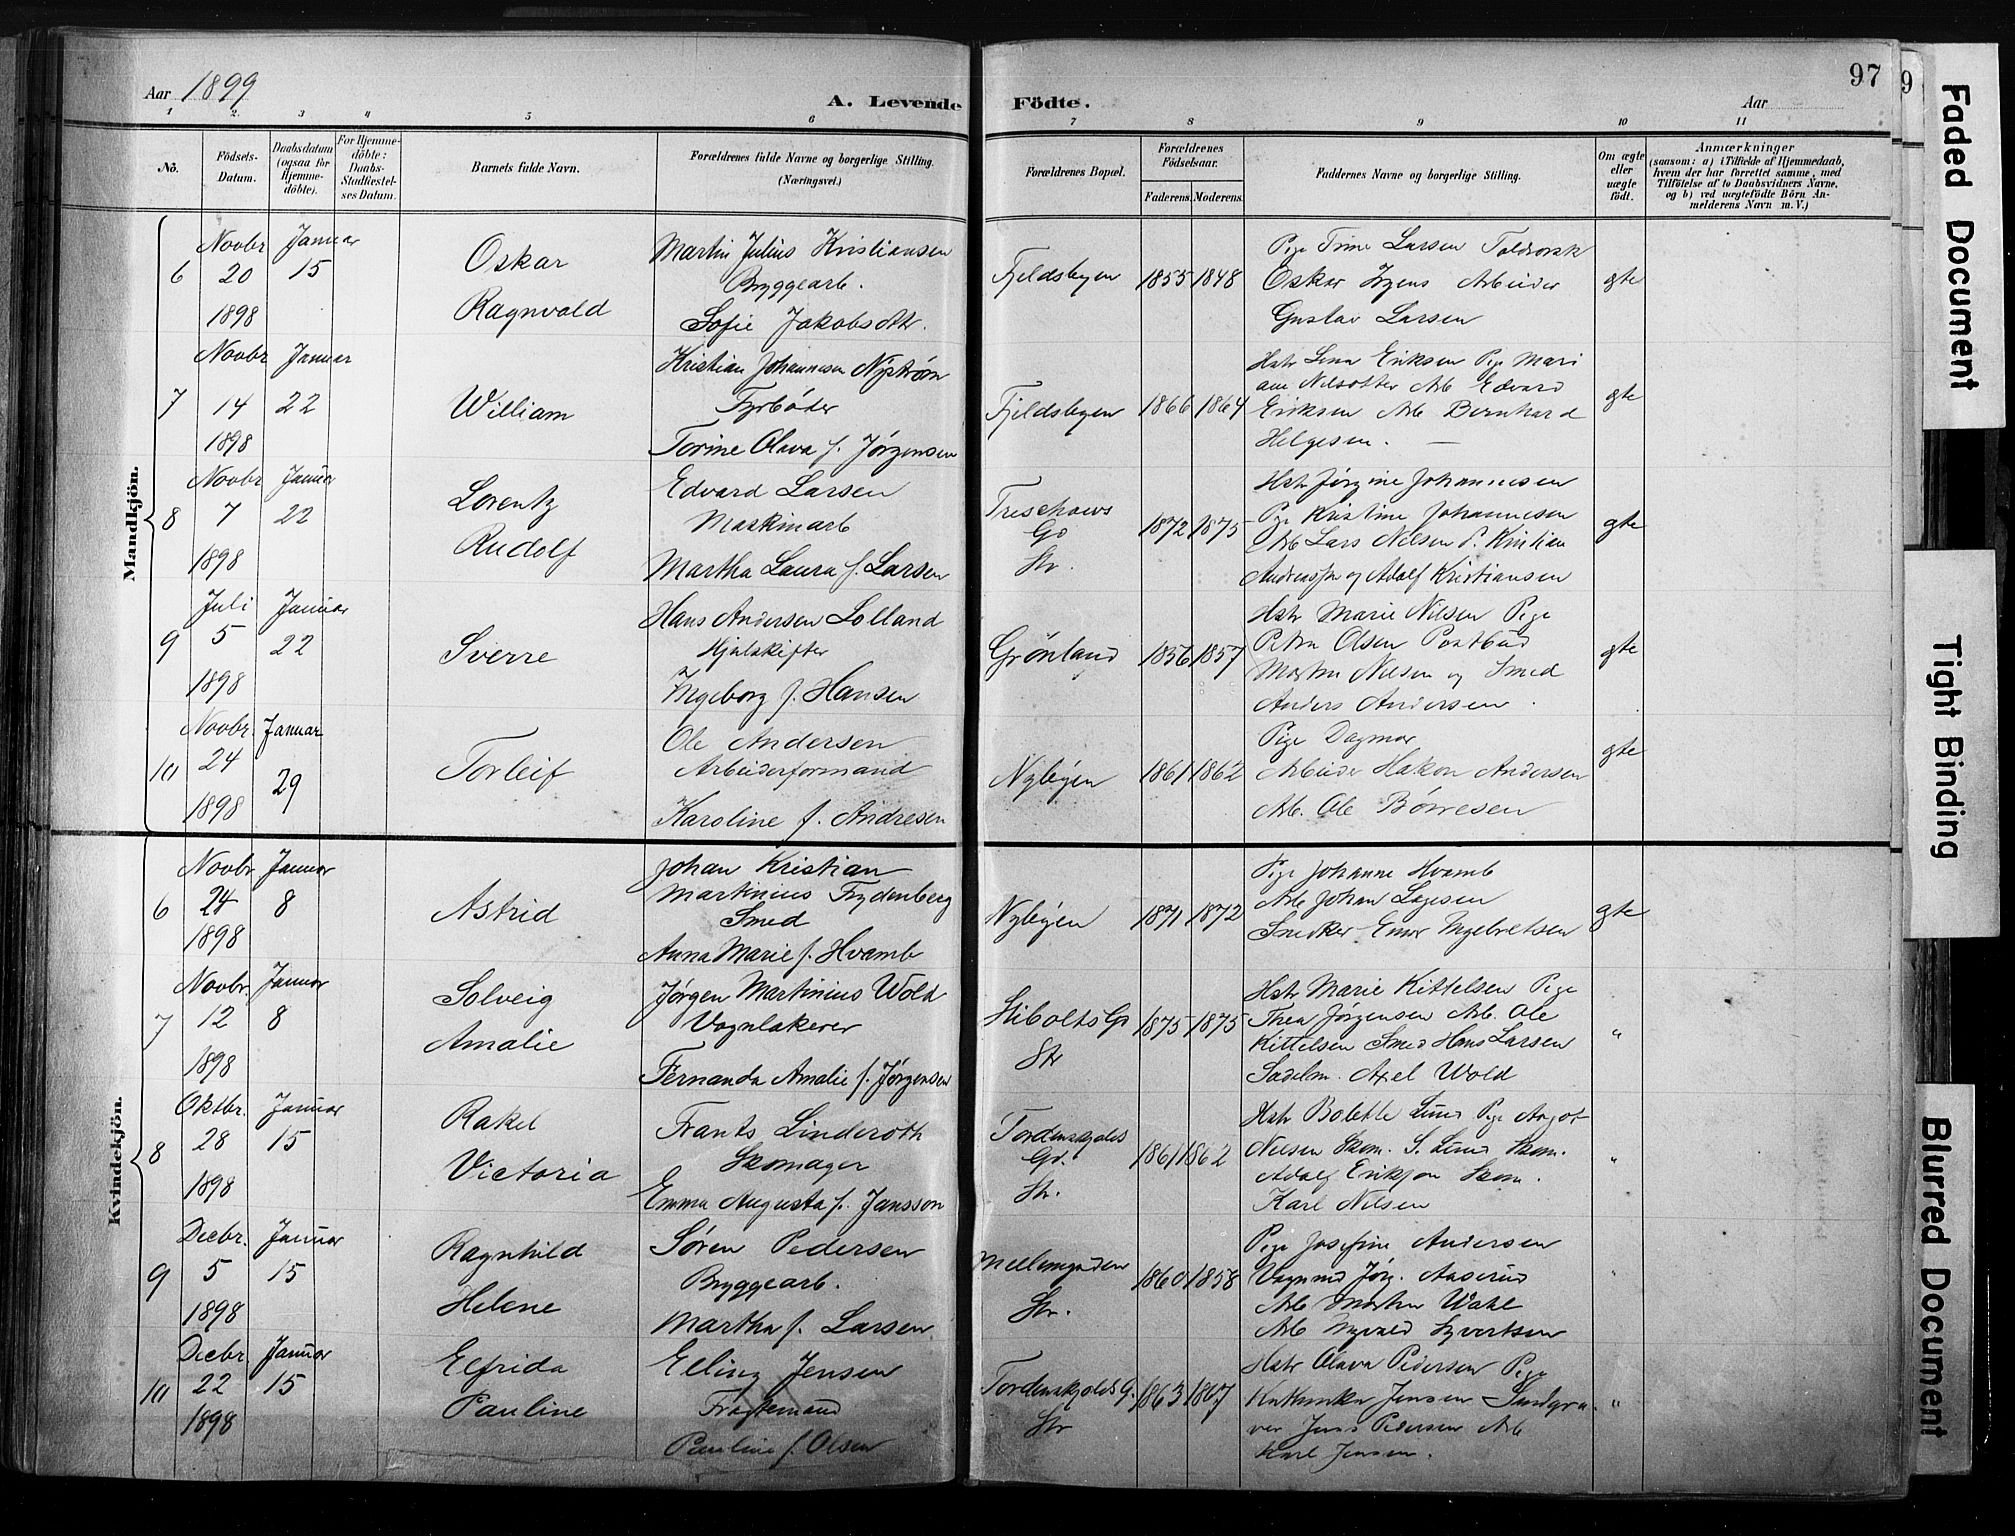 Aar 1899
A. Levende Födte.
Aar
97
1 2. 3 4 5 6 7 8 9 10 11
Nô.
Födsets-Datum.
Daabsdatum (ogsaa för Hjemmedöbte).
For Hjemmedöbte: Daabs-Stadfæstelses Datum.
Barnets fulde Navn.
Forældrenes fulde Navne og borgerlige Stilling. (Næringsvei.)
Forældrenes Bopæl.
Forældrenes Födselsaar.
Faderens. Moderens.
Faddernes Navne og borgerlige Stilling.
Om ægte eller uægte födt.
Anmærkninger
(saasom: a) i Tilfælde af Hjemmedaab, hvem der har forrettet samme, med Tilföielse af to Daabsvidners Navne, og b) ved uægtefödte Börn Anmelderens Navn m. V.)
Mandkjön.
6
Novbr 20 1898
Januar 15
Oskar
Ragnvald
Martin Julius Kristiansen
Bryggearb.
Sofie Jakobsdtr.
Fjeldsbyen
1855 1848
Pige Trine Larsen
Oskar Arbeider
Gustav Larsen
gte
7
Novbr 14 1898
Januar 22
William
Kristian Johannesen Nystrøm
Fyrbøder
Torine Olava f. Jørgensen
Fjeldsbyen
1866 1864
Hstr Lina Eriksen Pige Mari
ane Nilsdtter Arb Edvard
Eriksen Arb Bernhard
Helgesen.
gte
8
Novbr 7 1898
Januar 22
Lorentz
Rudolf
Edvard Larsen
Maskinarb
Martha Laura f. Larsen
Treschows
Gd
Str.
1872 1875
Hstr Jørgine Johannesen
Pige Kristine Johannesen
Arb Lars Nilsen P. Kristian
og Adolf Kristiansen
gte
9
Juli 5 1898
Januar 22
Sverre
Hans Andersen Lolland
Hjulskifter
Ingeborg f. Hansen
Grønland
1856 1857
Hstr Marie Nilsen Pige
Petra Olsen Postbud
Martin Nilsen og Smed
Anders Andersen.
gte
10
Novbr. 24 1898
Januar 29
Torleif
Ole Andersen
Arbeiderformand
Karoline f. Andresen
Nybyen
1861 1862
Pige Dagmar
Arbeider Hakon Andersen
Arb. Ole Børresen
gte
Kvindekjön.
6
Novbr 24 1898
Januar 8
Astrid
Johan Kristian
Martinius Frydenberg
Smed
Anna Marie f. Hvamb
Nybyen
1871 1872
Pige Johanne Hvamb
Arb Johan
Snedker Einar Ingebretsen
gte
7
Novbr. 12 1898
Januar 8
Solveig
Amalie
Jørgen Martinius Wold
Vognlakerer
Fernanda Amalie f. Jørgensen
Stibolts Gd
Str
1875 1875
Hstr Marie Kittelsen Pige
Thea Jørgensen Arb. Ole
Kittelsen Smed Hans Larsen
Sadelm. Axel Wold
"
8
Oktbr. 28 1898
Januar 15
Rakel
Victoria
Frants Linderoth
Skomager
Emma Augusta f. Jansson
Tordenskjolds
Gd.
Str.
1861 1862
Hstr Bolette Lund Pige
Nilsen Skom. S. Lund Skom.
Adolf Eriksson Skom.
Karl Nilsen
"
9
Decbr. 5 1898
Januar 15
Ragnhild
Helene
Søren Pedersen
Bryggearb.
Martha f. Larsen
Mellemgaden
Str.
1860 1858
Pige Josefine Andersen
Vognmd Jørg. Aaserud
Arb Martin Wahl
Arb Syvertsen
"
10
Decbr. 22 1898
Januar 15
Elfrida
Pauline
Elling Jensen
Fragtemand
Pauline f. Olsen
Tordenskjolds G.
Str
1863 1867
Hstr Olava Pedersen Pige
Kathinka Jensen Sandgra
ver Jens Pedersen Arb
Karl Jensen.
"
9
Faded Document
Tight Binding
Blurred Document